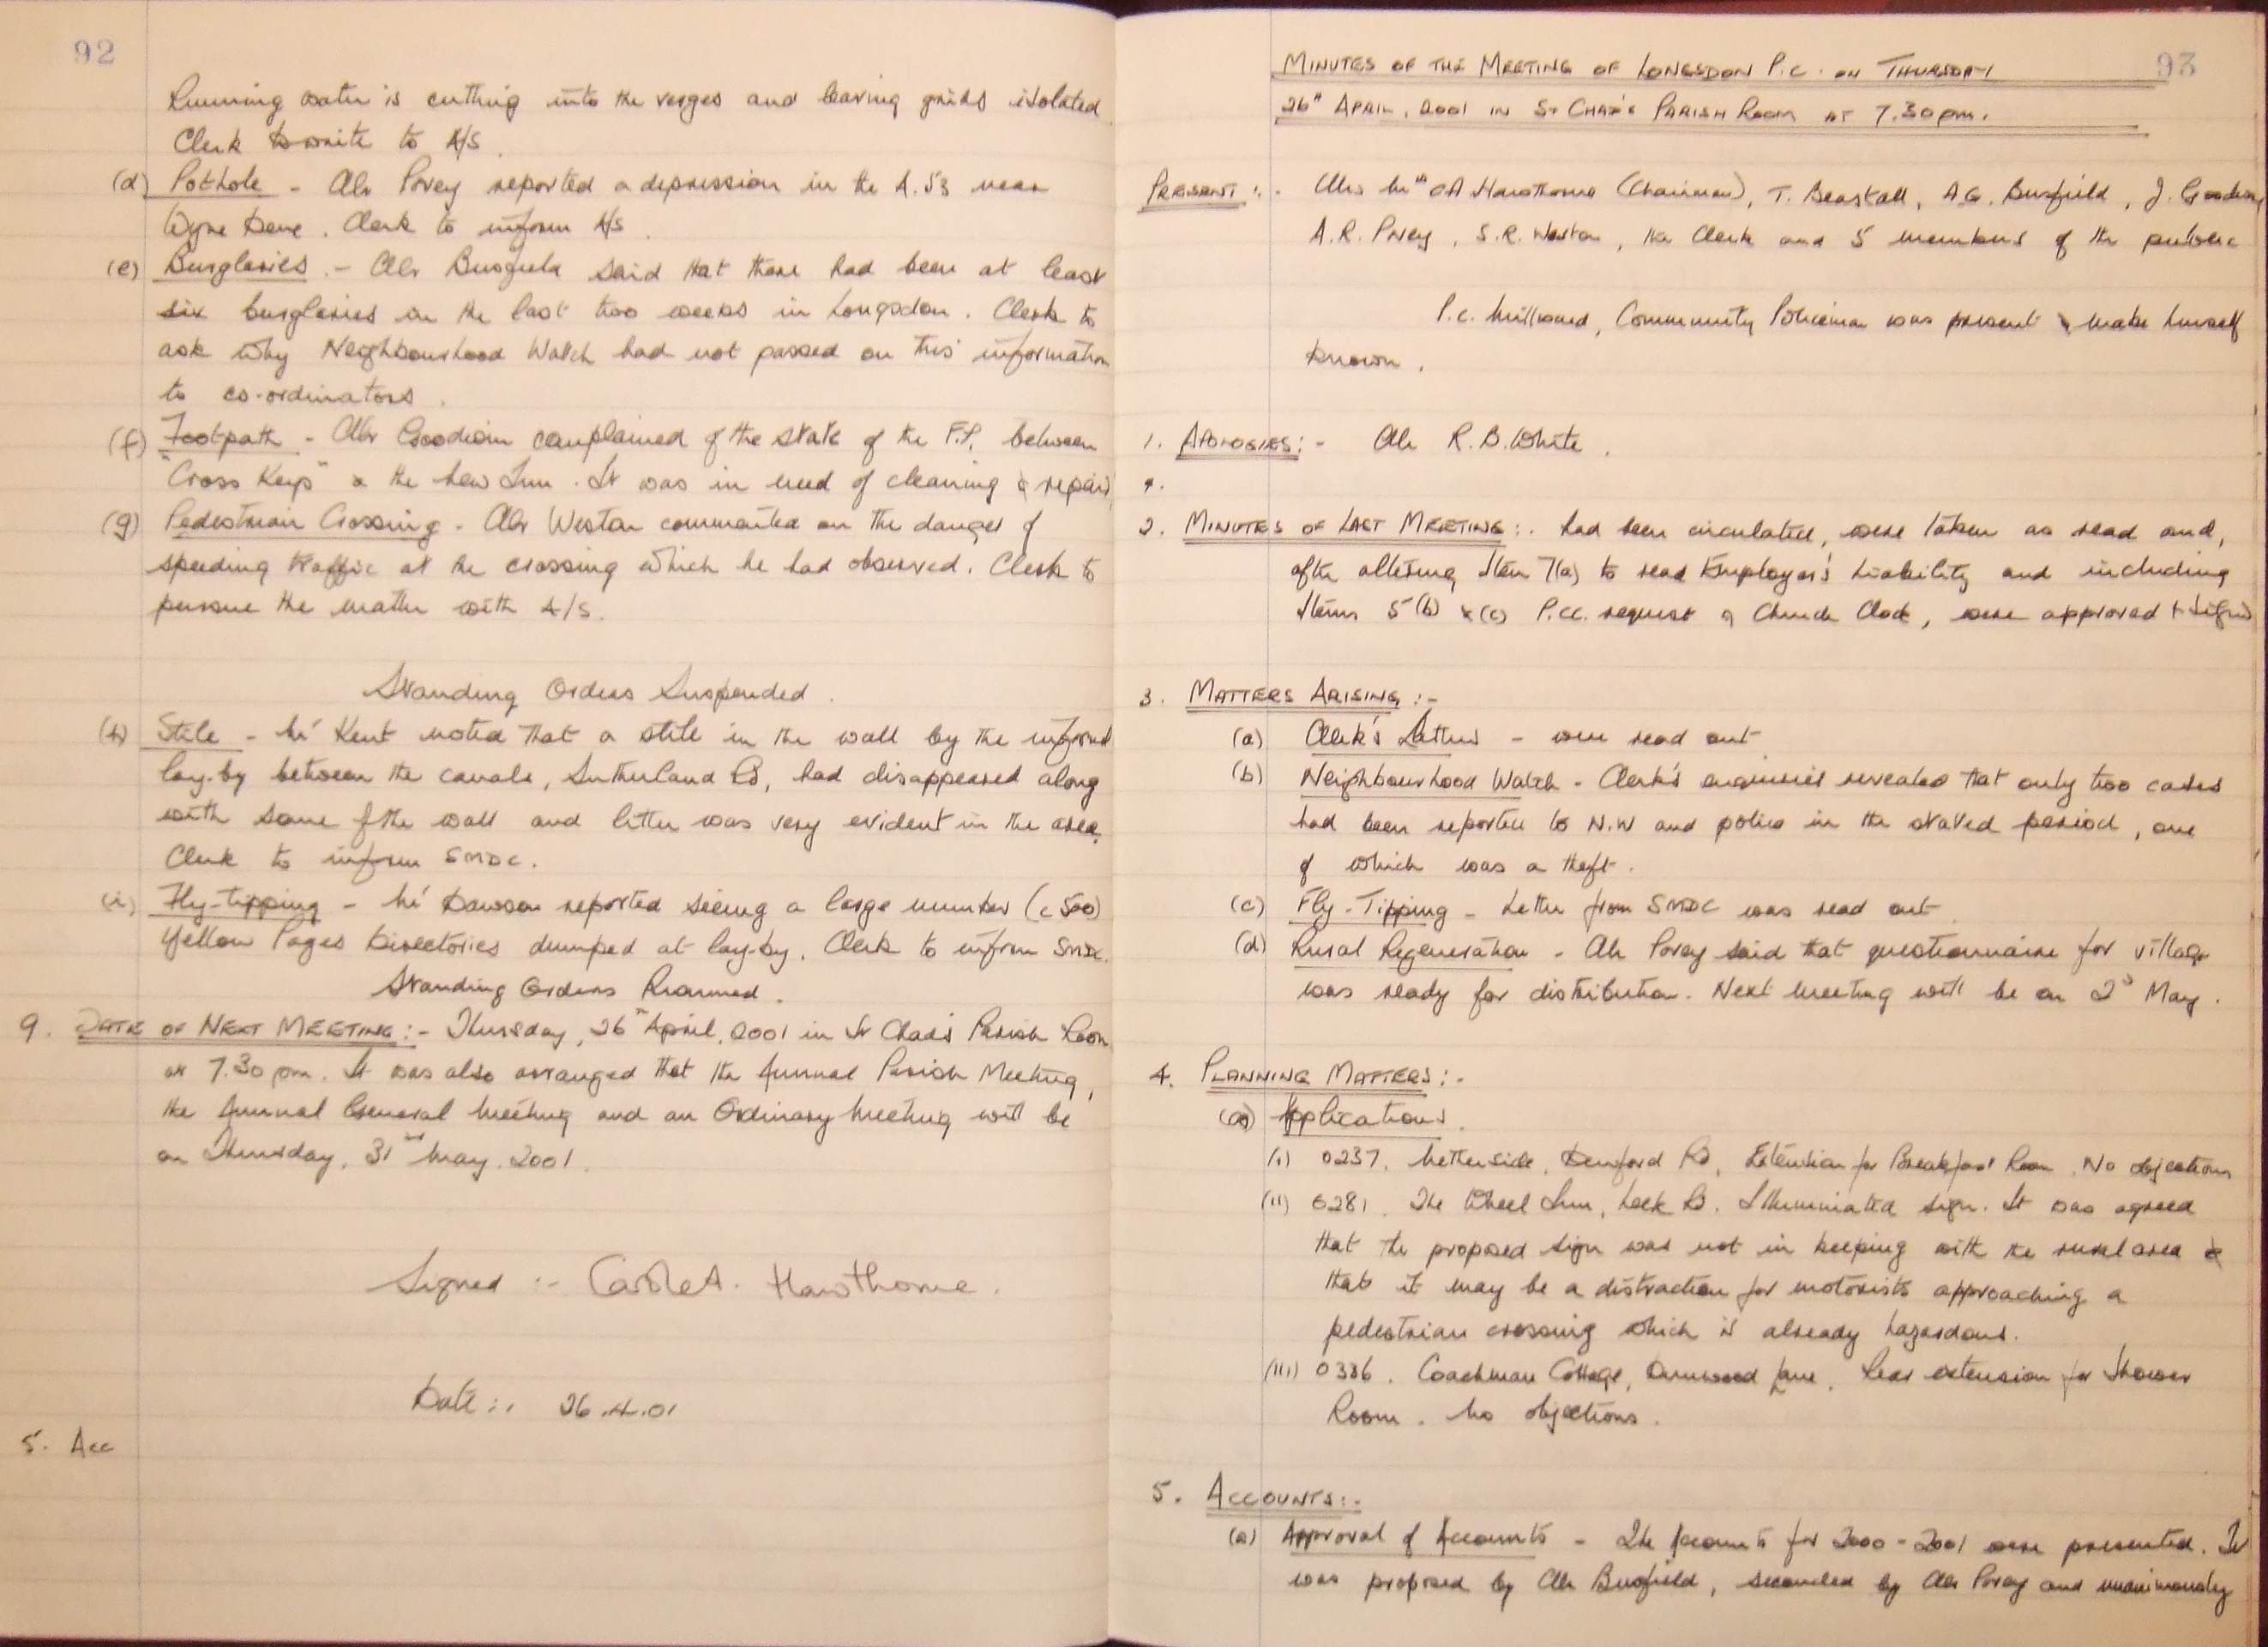 92
Running water is cutting into the verges and leaving grids isolated
Clerk to write to A/S.
(d) Pothole - Cllr Povey reported a depression in the A.53 near
Wyne Dene. Clerk to inform A/S.
(e) Burglaries. - Cllr Busfield said that there had been at least
six burglaries in the last two weeks in Longsdon. Clerk to
ask why Neighbourhood Watch had not passed on this information
to co-ordinators.
(f) Footpath - Cllr Goodwin complained of the state of the F.P. between
"Cross Keys" & the New Inn. It was in need of cleaning & repair
(g) Pedestrian Crossing - Cllr Weston commented on the danger of
speeding traffic at the crossing which he had observed. Clerk to
pursue the matter with A/S.
Standing Orders Suspended.
(h) Stile - Mr Kent noted that a stile in the wall by the informal
lay-by between the canals, Sutherland Rd, had disappeared along
with some of the wall and litter was very evident in the area.
Clerk to inform SMDC.
(i) Fly-tipping - Mr Dawson reported seeing a large number (c 500)
Yellow Pages Directories dumped at lay-by. Clerk to inform SMDC.
Standing Orders Resumed.
9. DATE OF NEXT MEETING:- Thursday, 26th April, 2001 in St Chad's Parish Room
at 7.30 pm. It was also arranged that the Annual Parish Meeting,
the Annual General Meeting and an Ordinary Meeting will be
on Thursday, 31st May, 2001.
Signed :- Carole A. Hawthorne.
Date :. 26.4.01
5. Acc
93
MINUTES OF THE MEETING OF LONGSDON P.C. ON THURSDAY
26th APRIL, 2001 IN ST CHAD'S PARISH ROOM AT 7.30pm.
PRESENT :- Cllrs Mrs CA Hawthorne (Chairman), T. Beastall, A.G. Busfield, J. Goodwin,
A.R. Povey, S.R. Weston, the Clerk and 5 members of the public
P.c. Millward, Community Policeman was present & make himself
known.
1. APOLOGIES:- Cllr R.B. White.
2. MINUTES OF LAST MEETING:- had been circulated, were taken as read and,
after altering Item 7(a) to read Employer's Liability and including
Items 5(b) & (c) P.CC. request of Church Clock, were approved & signed
3. MATTERS ARISING:-
(a) Clerk's Letters - were read out
(b) Neighbourhood Watch - Clerk's enquiries revealed that only two cases
had been reported to N.W and police in the stated period, one
of which was a theft.
(c) Fly-Tipping - Letter from SMDC was read out.
(d) Rural Regeneration - Cllr Povey said that questionnaire for village
was ready for distribution. Next meeting will be on 2nd May.
4. PLANNING MATTERS:-
(a) Applications.
(i) 0237. Netherside, Denford Rd, Extension for Breakfast Room. No objections
(ii) 0281. The Wheel Inn, Leek Rd. Illuminated sign. It was agreed
that the proposed sign was not in keeping with the rural area &
that it may be a distraction for motorists approaching a
pedestrian crossing which is already hazardous.
(iii) 0336. Coachman Cottage, Dunwood Lane. Rear extension for Shower
Room. No objections.
5. ACCOUNTS:-
(a) Approval of Accounts - The Accounts for 2000-2001 were presented. It
was proposed by Cllr Busfield, seconded by Cllr Povey and unanimously